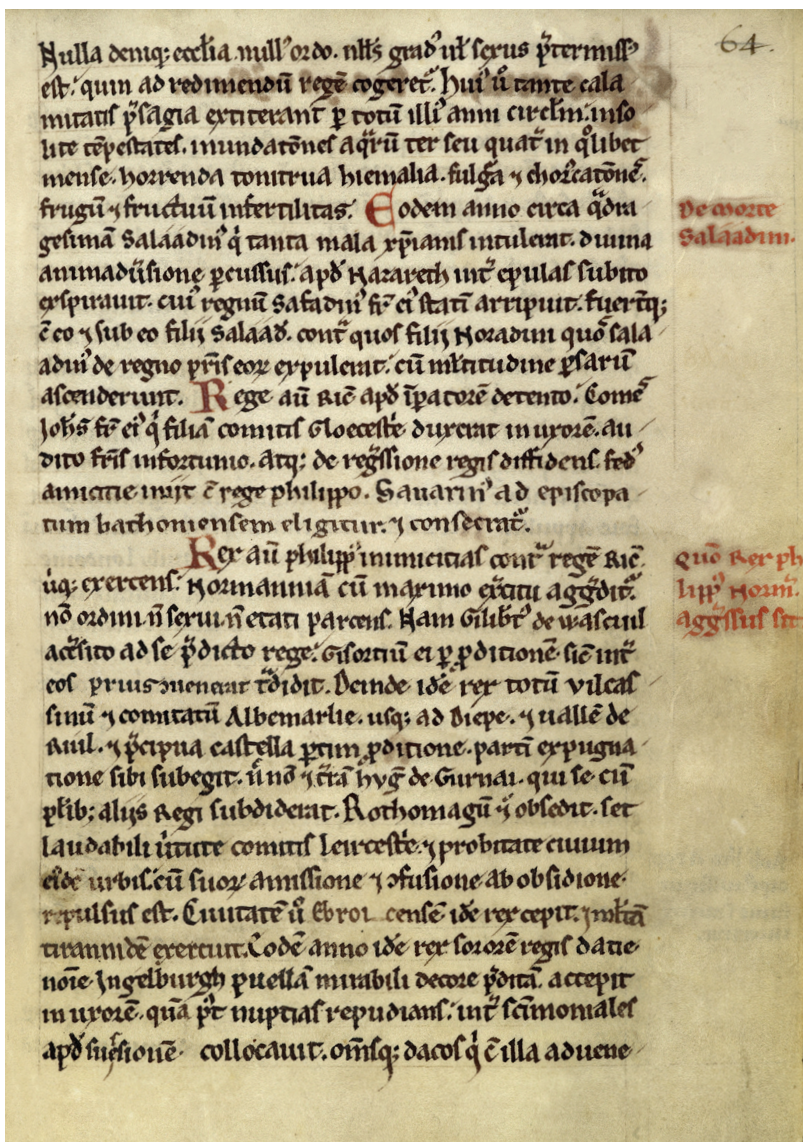 64.
Nulla deniq; eccl̄ia null᾽ ordo. nłłs grad᾽ uł sexus p̄termiss᾽
est. quin ad redimendū regē cogeret᾽. Hui᾽ ū tante cala
mitatis p̄sagia extiterant p totū illi᾽ anni circl̄m. inso
lite tēpestates. inundatōnes aq̄rū ter seu quat᾽ in q̄libet
mense. horrenda tonitrua hiemalia. fulg̃a ⁊ chor᾽catōnē.
frugū ⁊ fructuū infertilitas. Eodem anno circa q̄dra
gesimā Salaadin᾽ q᾽ tanta mala xp̄ianis intulerat. diuina
animadūsione p̄cussus. apd᾽ Nazareth int᾽ epulas subito
expirauit. cui᾽ regnū Safadin᾽ fr̄ ei᾽ statī arripuit. fuerūtq;
c̄ eo ⁊ sub eo filij Salaad᾽. cont᾽ quos filij Noradini quos᾽ sala
adin᾽ de regno pr̄is eoꝝ expulerat. cū ml̄titudine psarū
ascenderunt. Rege aū Ric̄ apd᾽ īpatorē detento. Comes᾽
Joh̄s fr̄ ei᾽ q᾽ filiā comitis Gloecestr̄e duxerat in uxorē. au
dito fr̄is infortunio. atq; de reg̃ssione regis diffidens. fed᾽
amicitie iniit c̄ rege philippo. Sauarin᾽ ad episcopa
tum bathoniensem eligitur. ⁊ consecrat᾽.
Rex aū philipp᾽ inimicitias cont᾽ regē Ric̄
ūq; exercens. Normanniā cū maximo ex᾽citu agg̃dit᾽.
nō ordini. n̄ sexui. n̄ etati parcens. Nam Gilib̄t᾽ de Wascuil
acc̄sito ad se p̄dicto rege. Gisortiū ei p pditionē sic̄ int᾽
eos prius᾽ uenerat t᾽didit. Deinde idē rex totū vilcas
sinū ⁊ comitatū Albemarlie. usq; ad Diepe. ⁊ uallē de
Ruil. ⁊ p̄cipua castella ptim pditione. partī expugna
tione sibi subegit. ūn̄o ⁊ t̄rā hug̃ de Gurnai. qui se cū
pl̄ib; alijs Regi subdiderat. Rothomagū ⁊ obsedit. set
laudabili ūtute comitis leircestr̄e. ⁊ probitate ciuium
ei᾽dē urbis. cū suoꝝ amissione ⁊ ꝯfusione ab obsidione
repulsus est. Ciuitatē ū Ebroi censē idē rex cepit.
tirannidē exercuit. Eodē anno idē rex sororē regis datie
noīe Ingelburgh puellā mirabili decore p̄ditā. accepit
in uxorē. quā p᾽t nuptias repudians. int᾽ sc̄imoniales
apd᾽ suessionē collocauit. om̄sq; dacos q᾽ c̄ illa aduene
De morte
Salaadini.
Quō Rex ph
lipp᾽ Norm̄.
agg̃ssus sit